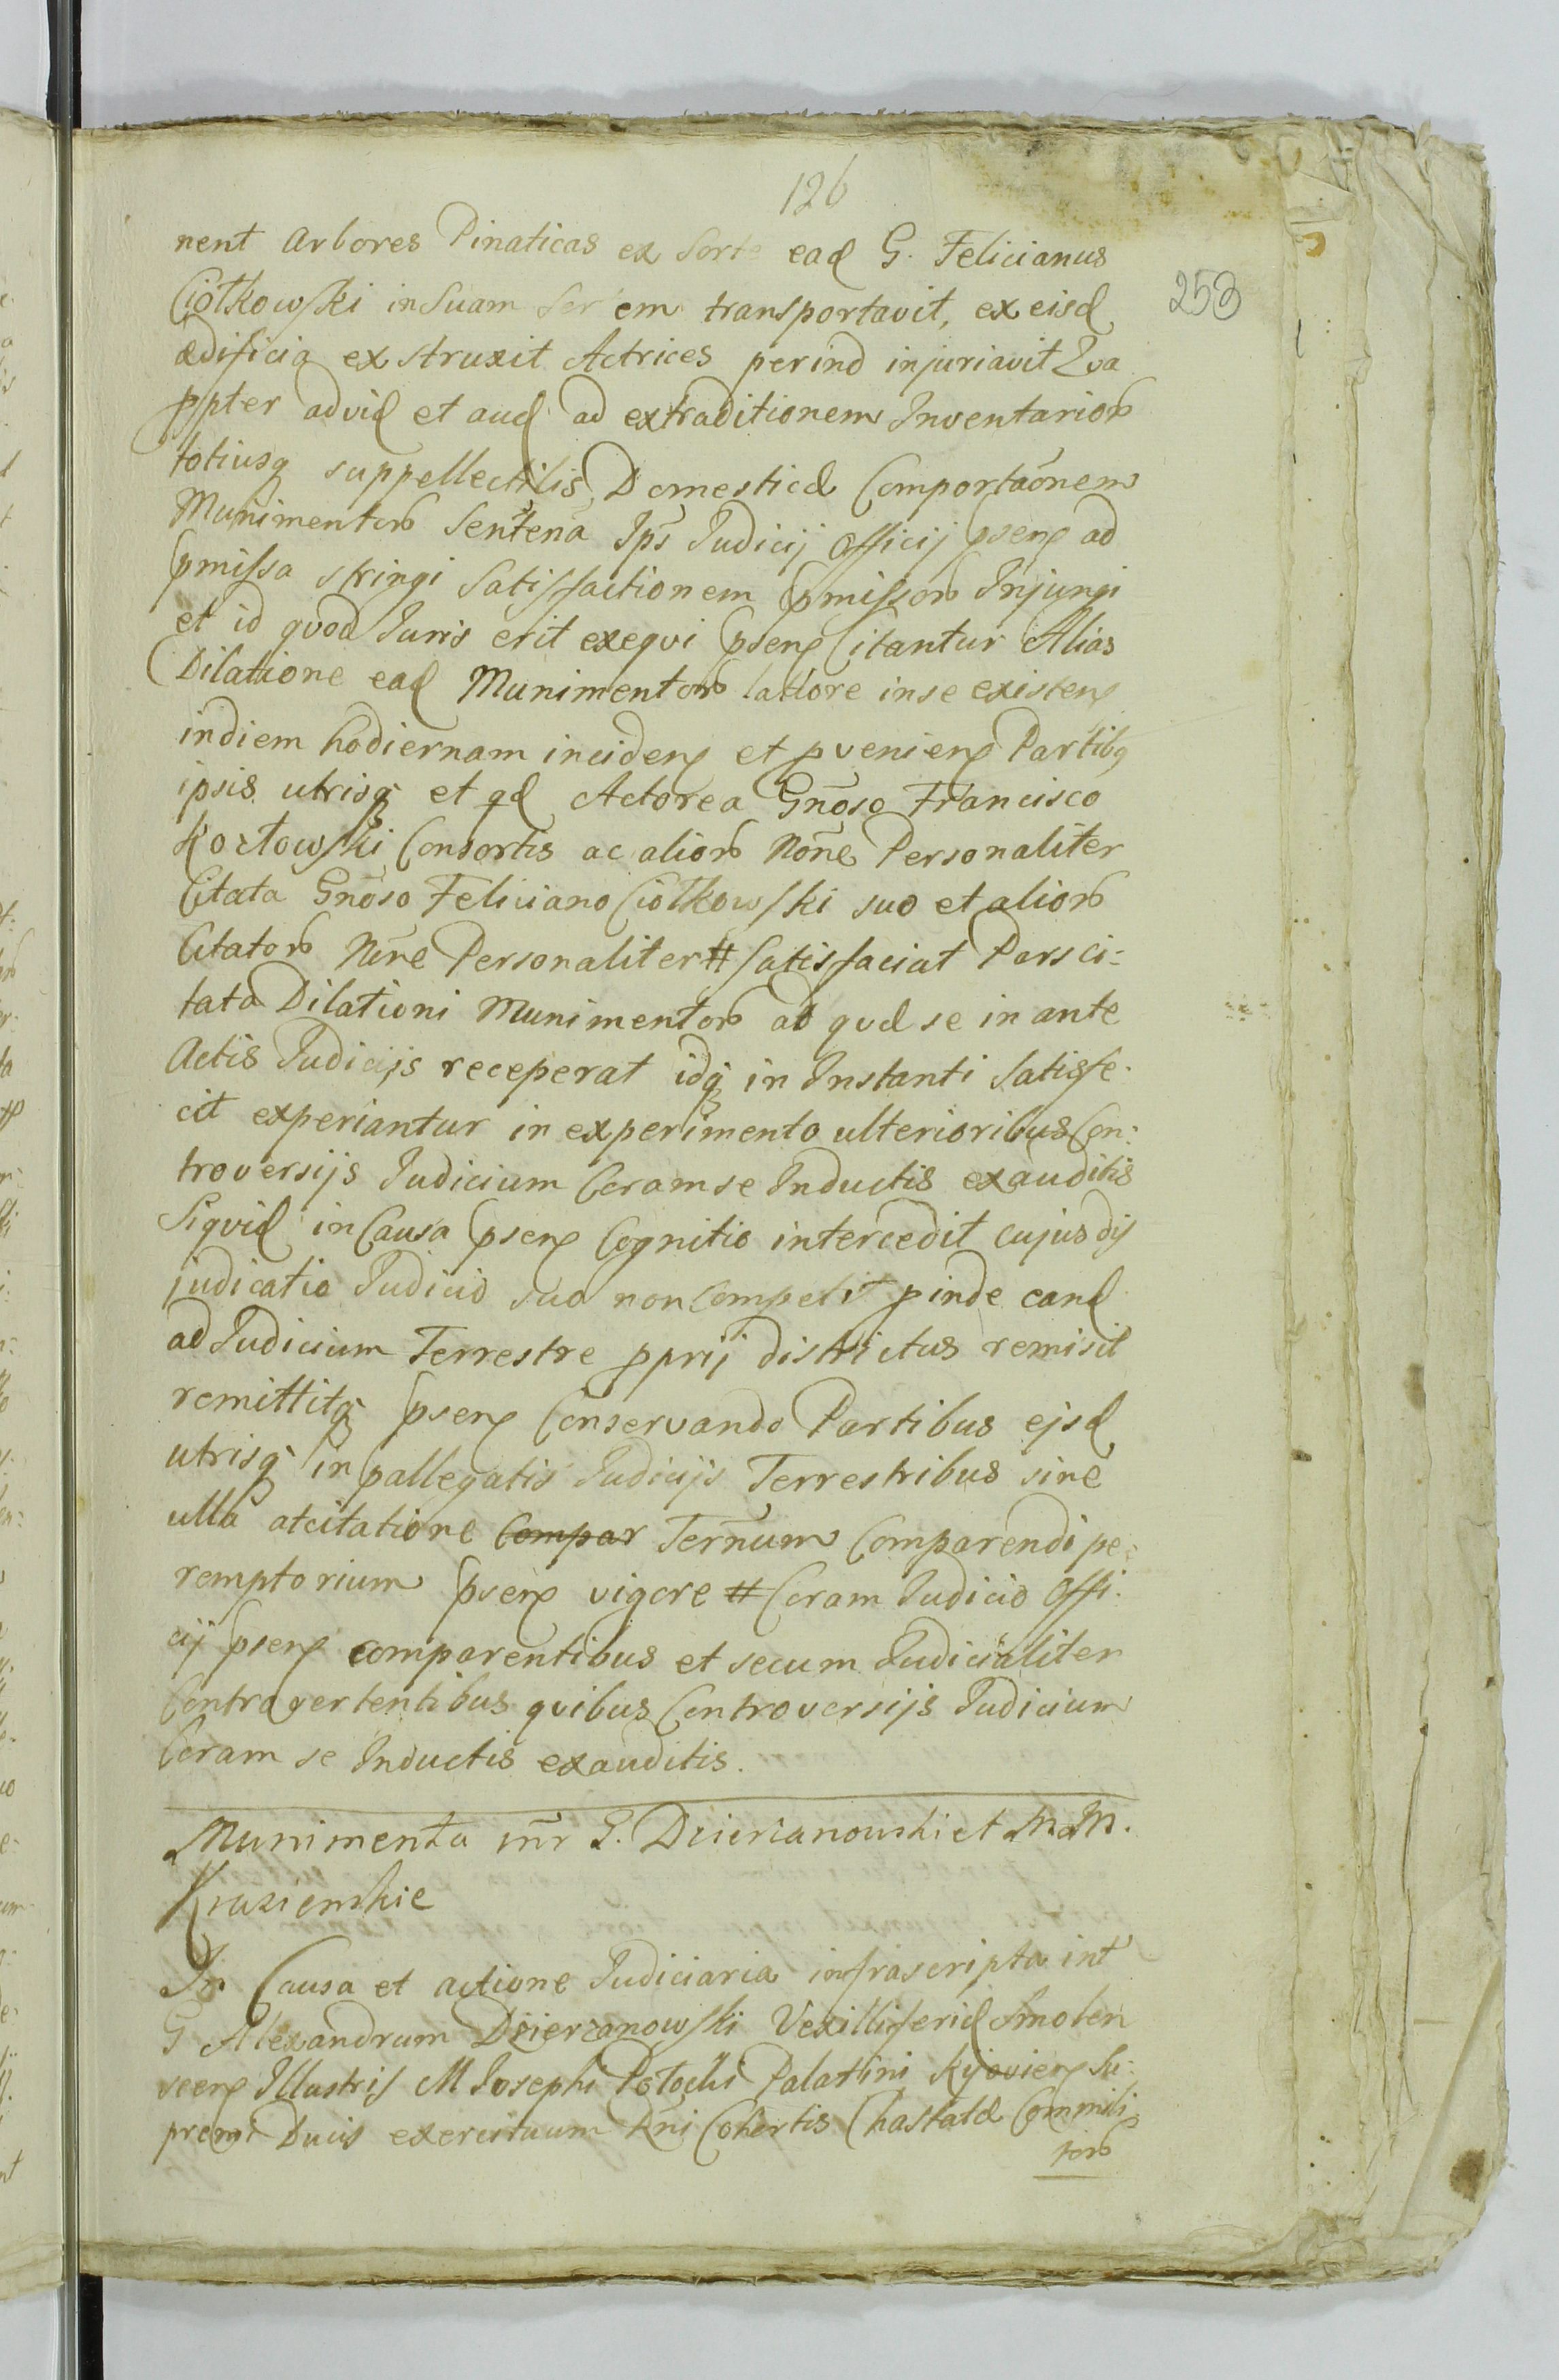 126
253
nent Arbores Pinaticas ex Sorte ead G. Felicianus
Ciołkowski in Suam transportavit, ex eisd
ædificia exstruxit Actrices perind injuriavit Qva
ppter ad vid et aud ad extraditionem Inventarior
totiusq suppellectilis Domesticæ Comportaonem
Munimentor Sentena Ips Judicij Officij psens ad
pmissa stringi Satisfactionem pmissor Injungi
et id qvod Juris erit exeqvi psens Citantur Alias
Dilatione ead Munimentor latiore in se existens
in diem hodiernam incidens et pveniens Partibq
ipsis utrisq et qd Actorea Gnoso Francisco
Kozłowski Consortis ac alior None Personaliter
Citata Gnoso Feliciano Ciołkowski suo et alior
Citator None Personaliter # Satisfaciat Pars ci:
tata Dilationi Munimentor ad qvd se in ante
Actis Judicijs receperat idq in Instanti Satisfe-
cit experiantur in experimento ulterioribus Con:
troversijs Judicium Coram se Inductis exauditis
Siqvid in Causa psens Cognitio intercedit cujus dij
judicatio Judicio suo non Competit pinde eand
ad Judicium Terrestre pprij districtus remisit
remittitq psens Conservando Partibus ejsd
utrisq in pallegatis Judicijs Terrestribus sine
ulla atcitatione Compar Ternum Comparendi pe:
remptorium psens vigore # Coram Judicio Offi:
cij psens comparentibus et secum Judicialiter
Controvertentibus qvibus Controversijs Judicium
Coram se Inductis exauditis.
Munimenta intr G. Dzierzanowski et M. M.
Krasienskie
In Causa et actione Judiciaria infrascripta int
G Alexandrum Dzierzanowski Vexilliferid Smolen
scens Illustris M Josephi Potocki Palatini Kijoviens Su:
premi Ducis exercituum Rni Cohortis Chastatæ Commili
tor